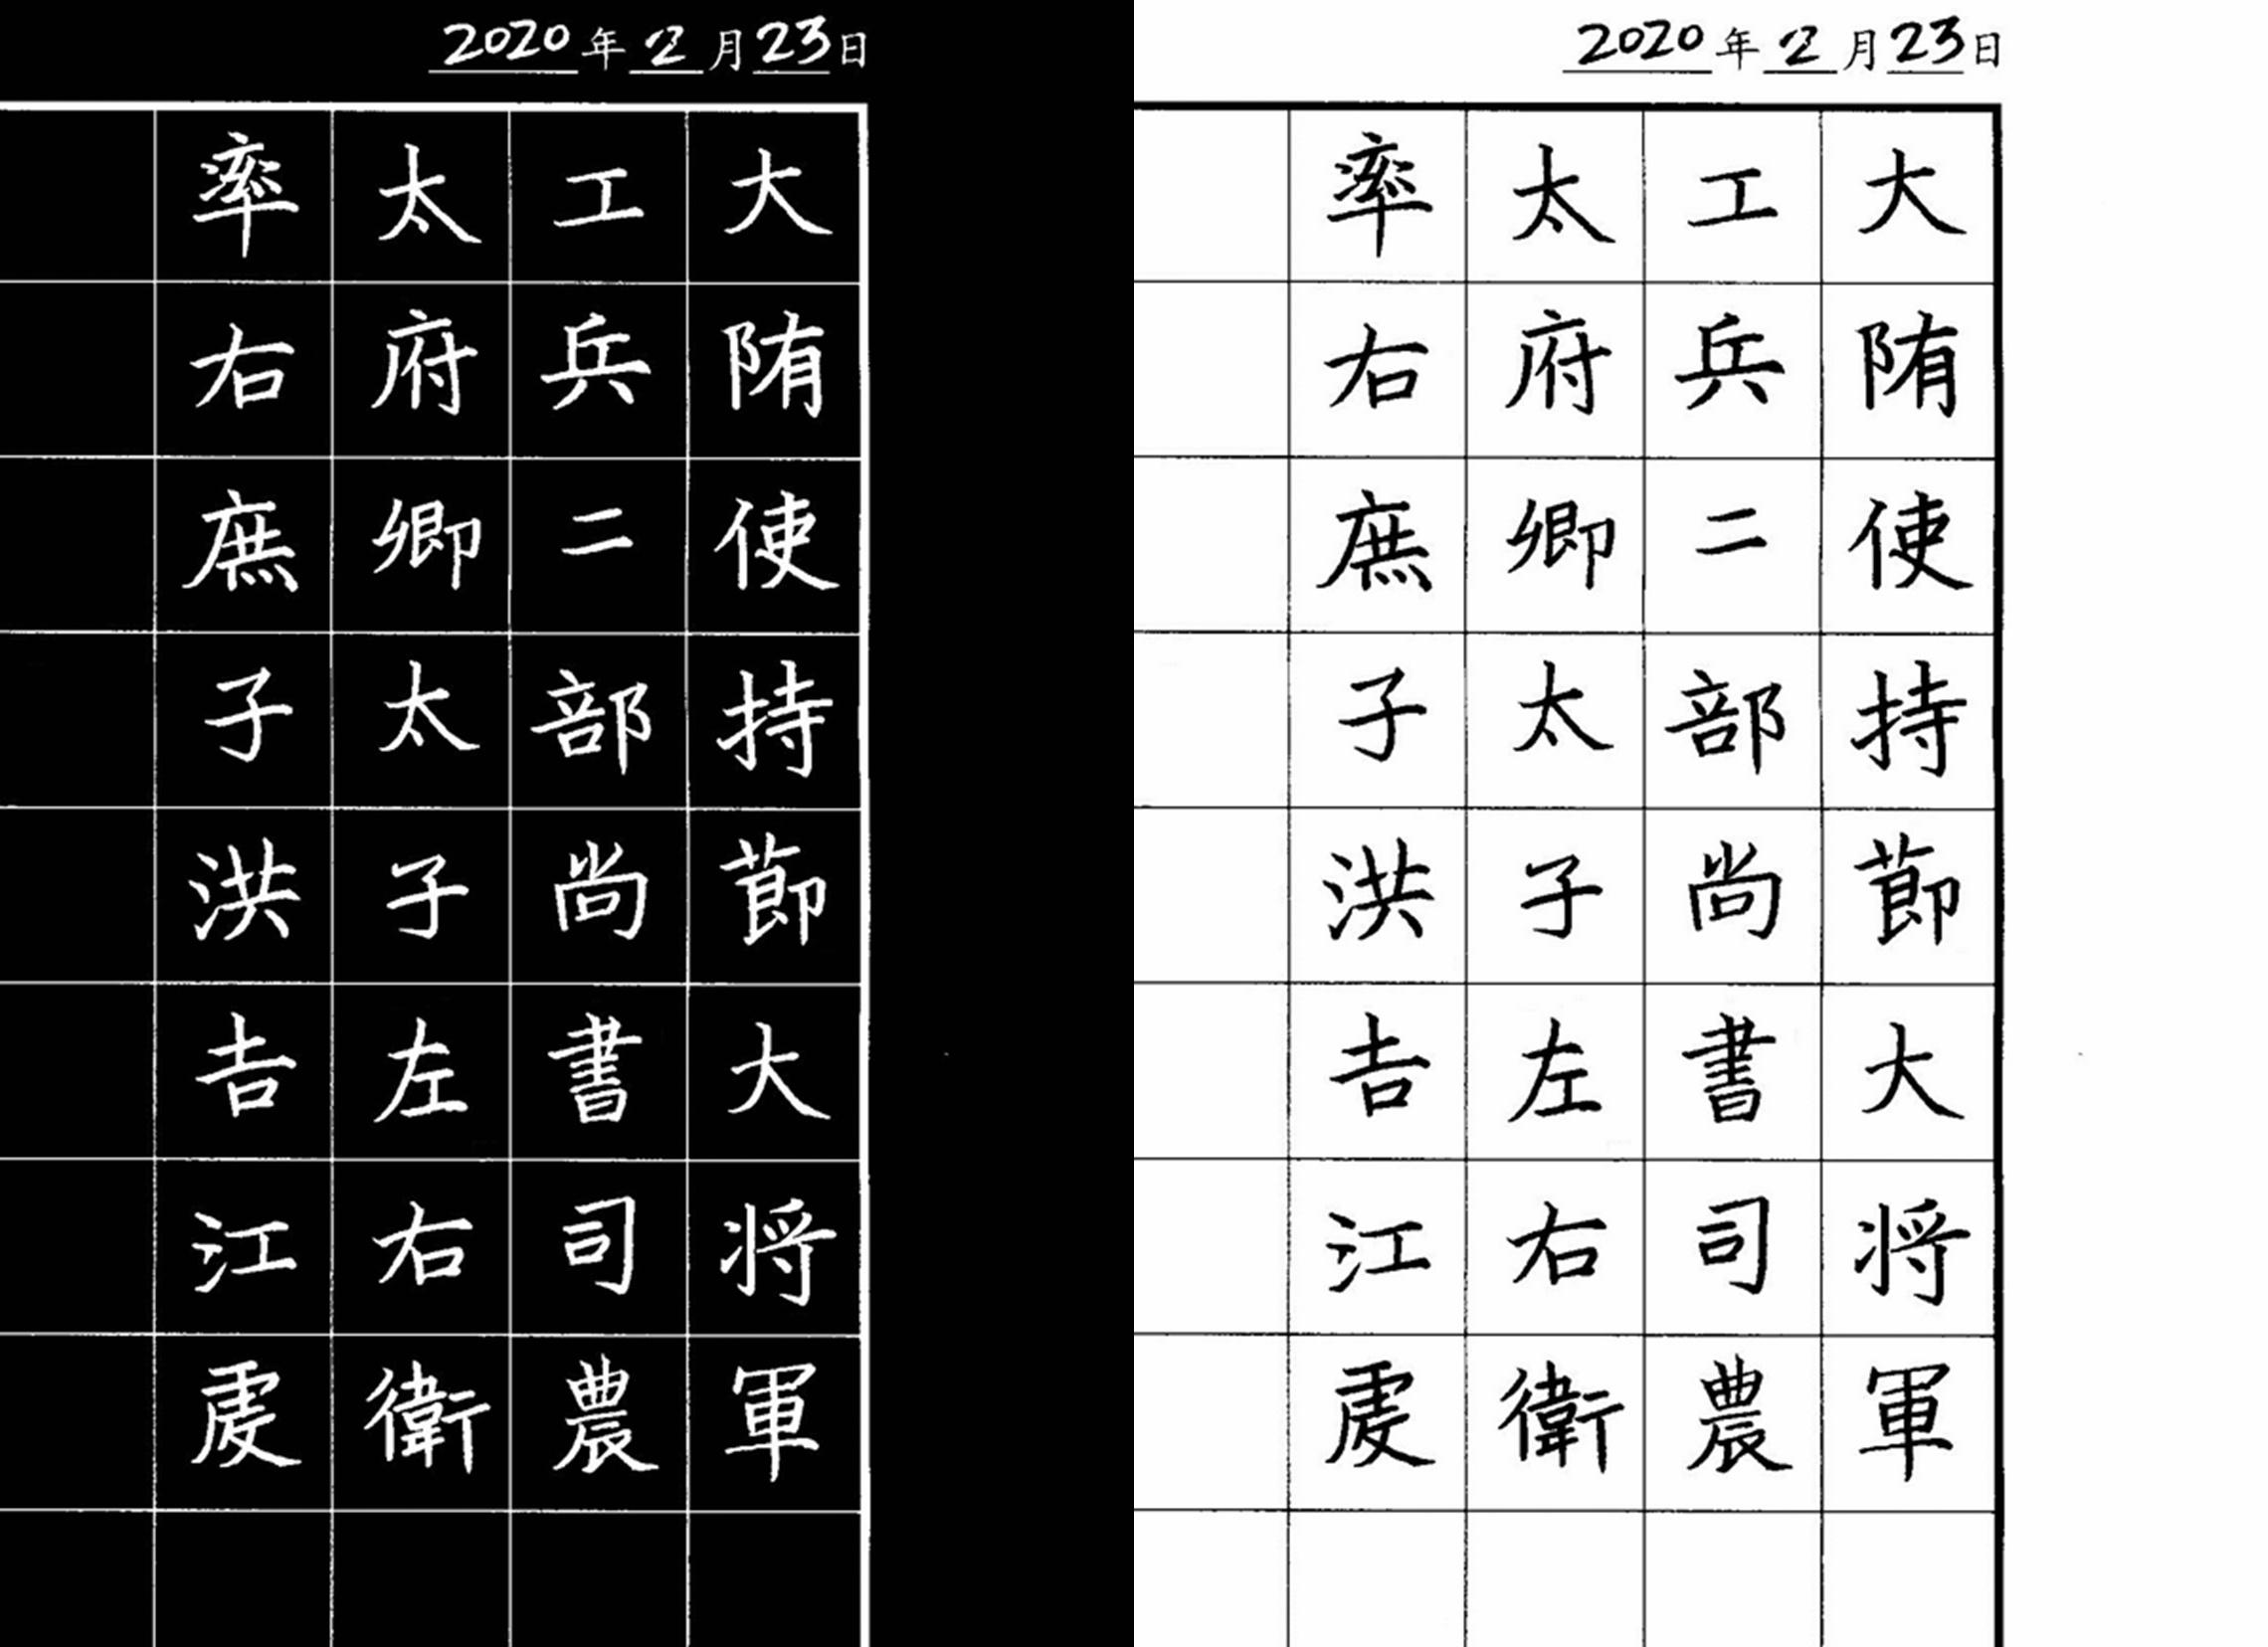 2020年2月23日
大陏使持莭大将軍
工兵二部尚書司農
太府卿太子左右衛
率右庶子洪𠮷江虔
2020年2月23日
大陏使持莭大将軍
工兵二部尚書司農
太府卿太子左右衛
率右庶子洪𠮷江虔